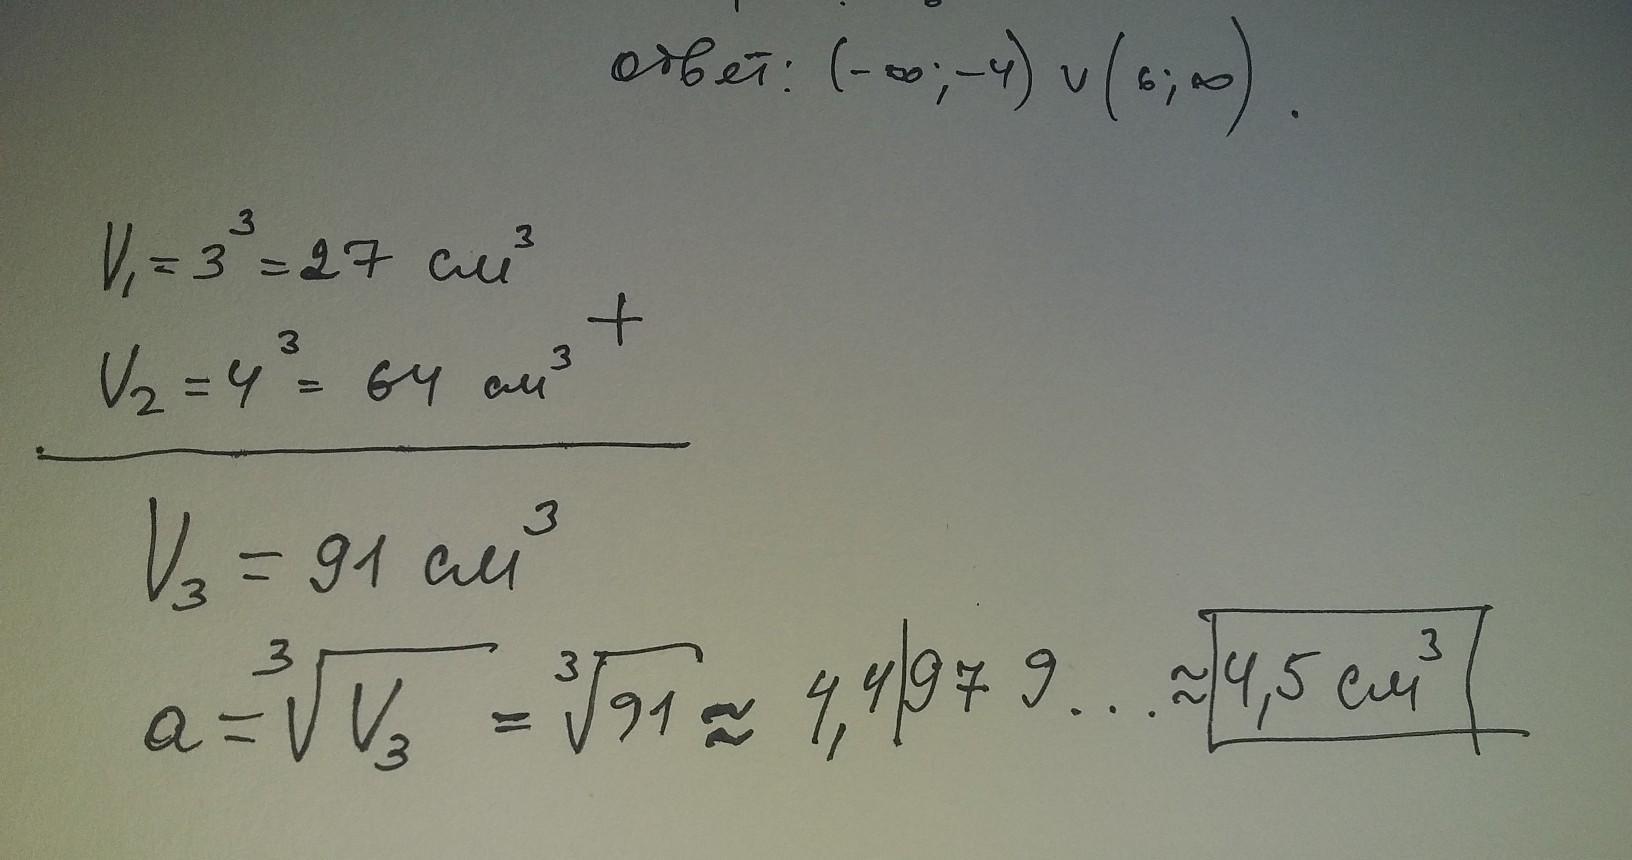 ответ: (-∞; -4) ∪ (6; ∞).
V₁ = 3³ = 27 см³
+
V₂ = 4³ = 64 см³
V₃ = 91 см³
a = ³√V₃ = ³√91 ≈ 4,4|979... ≈ 4,5 см³